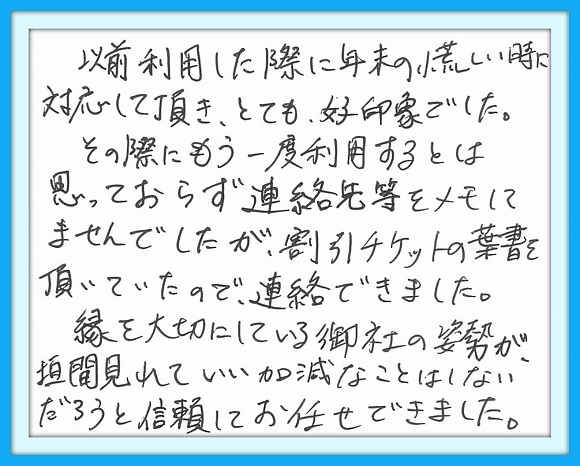 以前利用した際に年末の慌しい時に
対応して頂き、とても、好印象でした。
その際にもう一度利用するとは
思っておらず連絡先等をメモして
ませんでしたが、割引チケットの葉書を
頂いていたので、連絡できました。
縁を大切にしている御社の姿勢が、
垣間見れていい加減なことはしない
だろうと信頼してお任せできました。